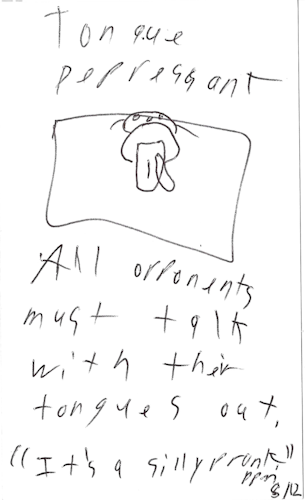 Tongue
pepressant
All opponents
must talk
with their
tongues out.
"It's a silly prank."
8/12